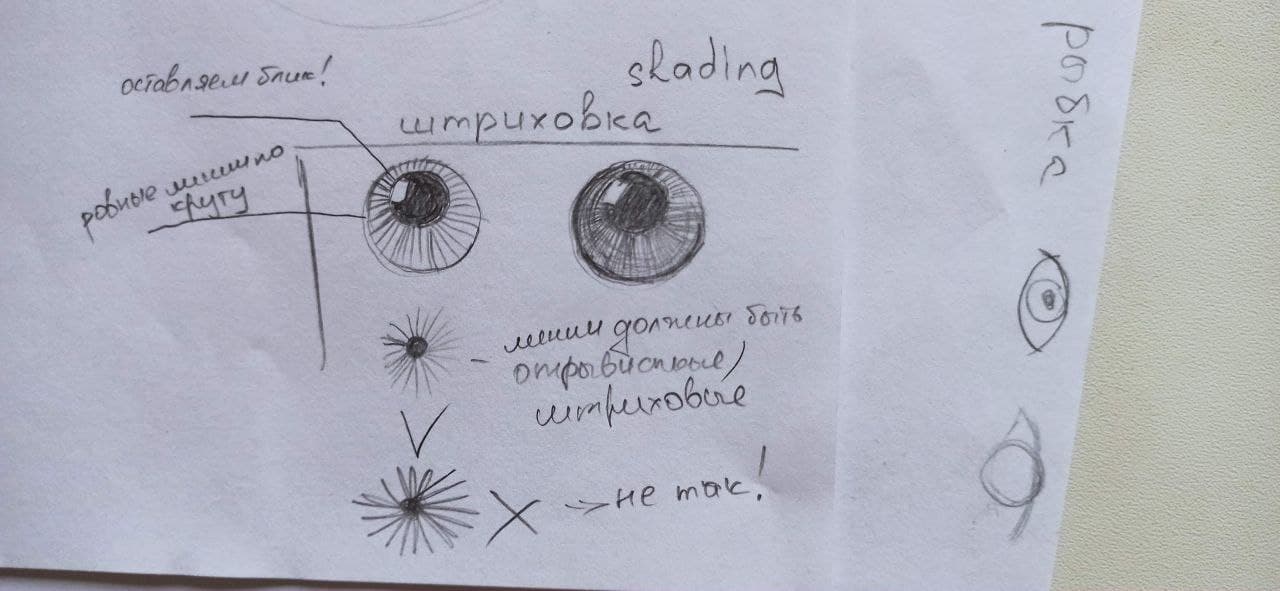 shading
оставляем блик!
штриховка
ровные линии по
кругу
линии должны быть
отрывистые,
штриховые
не так!